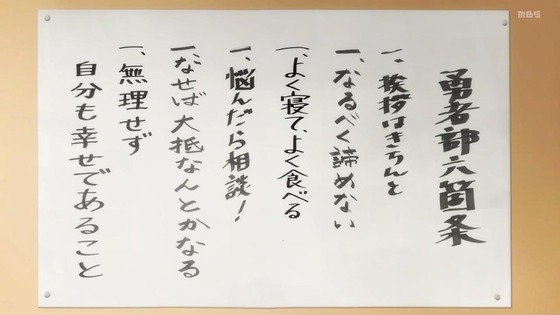 勇者部六箇条
一、挨拶はきちんと
一、なるべく諦めない
一、よく寝て、よく食べる
一、悩んだら相談!
一、なせば大抵なんとかなる
一、無理せず
自分も幸せであること
MBS